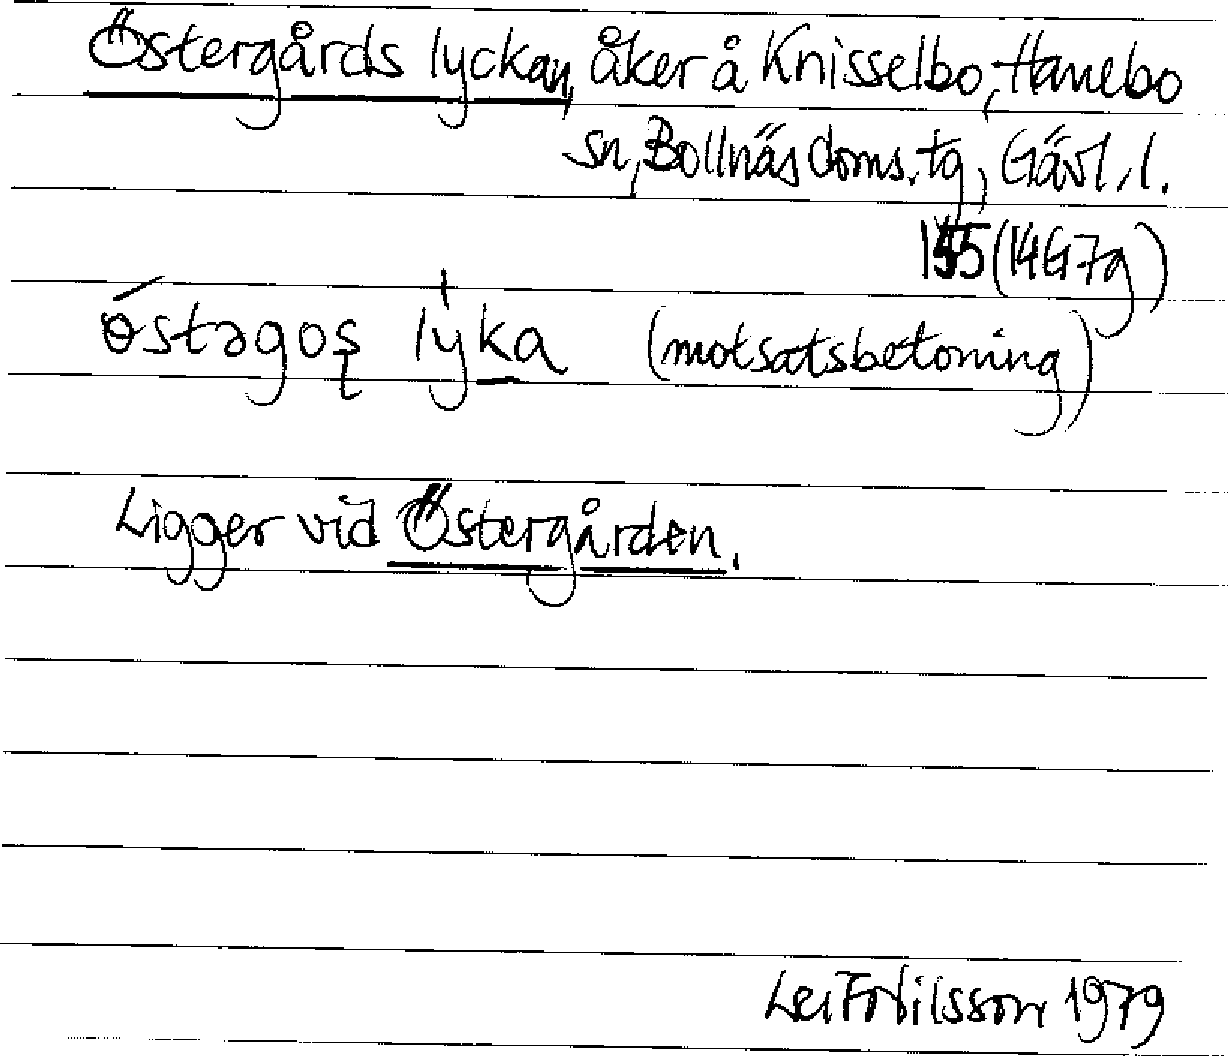 Östergårds lyckan, åker å Knisselbo, Hanebo
sn, Bollnäs doms. tg, Gävl. l.
155 (14G7g)
östəgoş lyka (motsatsbetoning)
Ligger vid Östergården.
Leif Nilsson 1979